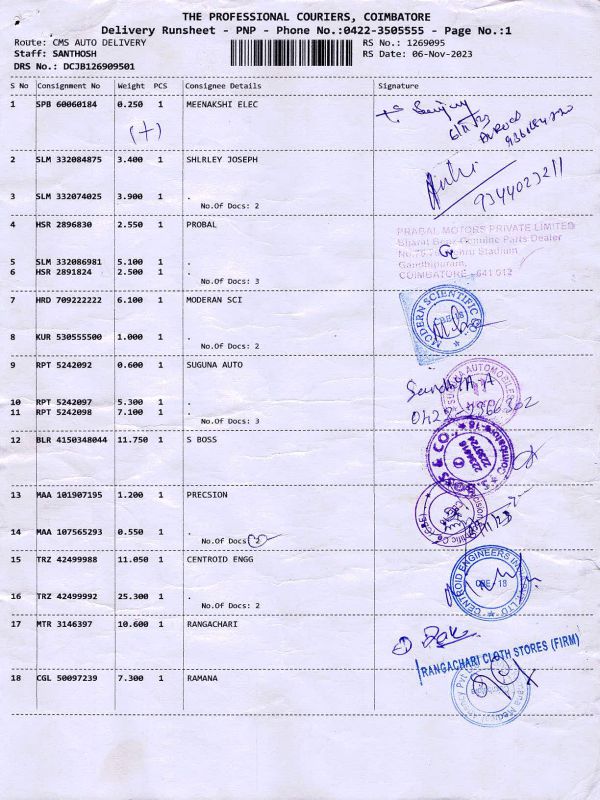 THE PROFESSIONAL COURIERS, COIMBATORE
Delivery Runsheet - PNP - Phone No.:0422-3505555 - Page No.:1
Route: CMS AUTO DELIVERY RS No.: 1269095
Staff: SANTHOSH RS Date: 06-Nov-2023
DRS No.: DCJB126909501
S No Consignment No Weight PCS Consignee Details Signature
1 SPB 60060184 0.250 1 MEENAKSHI ELEC
(+)
2 SLM 332084875 3.400 1 SHLRLEY JOSEPH
3 SLM 332074025 3.900 1 .
No.Of Docs: 2
9344023211
4 HSR 2896830 2.550 1 PROBAL
PRABAL MOTORS PRIVATE LIMITED
Bharat Benz Genuine Parts Dealer
Nehru Stadium
5 SLM 332086981 5.100 1 .
Gandhipuram,
6 HSR 2891824 2.500 1 .
COIMBATORE - 641 012
No.Of Docs: 3
7 HRD 709222222 6.100 1 MODERAN SCI
MODERN SCIENTIFIC
8 KUR 530555500 1.000 1 .
No.Of Docs: 2
9 RPT 5242092 0.600 1 SUGUNA AUTO
SUGUNA AUTOMOBILES
10 RPT 5242097 5.300 1 .
11 RPT 5242098 7.100 1 .
No.Of Docs: 3
12 BLR 4150348044 11.750 1 S BOSS
S. BOSS & CO., Coimbatore-18
2234418
2236724
13 MAA 101907195 1.200 1 PRECSION
14 MAA 107565293 0.550 1 .
No.Of Docs: 2
15 TRZ 42499988 11.050 1 CENTROID ENGG
CENTROID ENGINEERS IN
LTD
CBE - 18
16 TRZ 42499992 25.300 1 .
No.Of Docs: 2
17 MTR 3146397 10.600 1 RANGACHARI
RANGACHARI CLOTH STORES (FIRM)
18 CGL 50097239 7.300 1 RAMANA